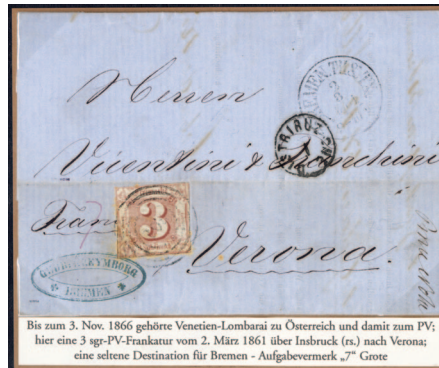 Herren
Vicentini & Franchini
Verona.
3
BREMEN
Bis zum 3. Nov. 1866 gehörte Venetien-Lombarai zu Österreich und damit zum PV;
hier eine 3 sgr-PV-Frankatur vom 2. März 1861 über Insbruck (rs.) nach Verona;
eine seltene Destination für Bremen - Aufgabevermerk „7" Grote